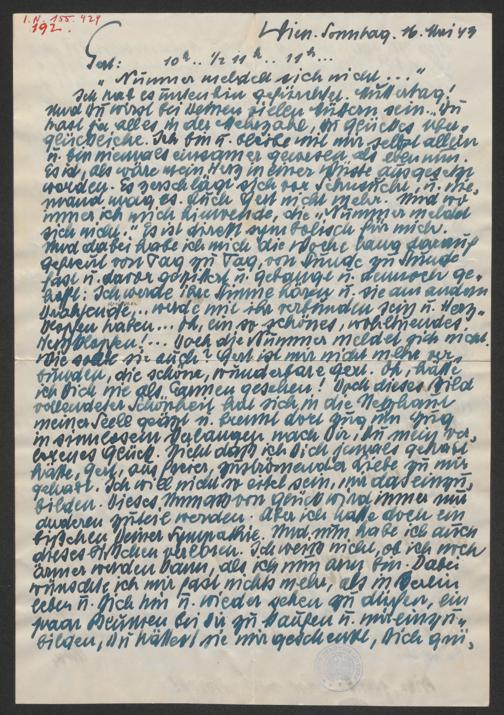 I.N. 155.429
192.
Wien. Sonntag. 16. Mai 43
Gert: 10h.. 1/2 11h.. 11h...
"Nummer meldet sich nicht..."
Ich hab es gefürchtet. Muttertag!
Und Du wirst bei Deinen vielen Müttern sein. Du
hast ja alles in der Mehrzahl, Du Glückes über-
glückliche. Ich bin u. bleibe mit mir selbst allein
u. bin niemals einsamer gewesen als eben nun.
Es ist, als wäre mein Herz in einer Wüste ausgesetzt
worden. Es zerschlägt sich vor Sehnsucht, u. nie-
mand mag es. Auch Gert nicht mehr. Und wo
immer ich mich hinwende, die "Nummer meldet
sich nicht." Es ist direkt symbolisch für mich.
Und dabei habe ich mich die Woche lang darauf
gefreut von Tag zu Tag, von Stunde zu Stunde
fast u. davor gezittert u. gebangt u. dennoch ge-
hofft: Ich werde ihre Stimme hören u. sie am andern
Drahtende... werde mit ihr verbunden sein u. Herz-
klopfen haben... Oh, ein so schönes, wohltuendes
Herzklopfen!... Doch die Nummer meldet sich nicht.
Wie sollte sie auch? Gert ist mir nicht mehr ver-
bunden, die schöne, wunderbare Gert. Oh, hätte
ich Dich nie als Carmen gesehen! Doch dieses Bild
vollendeter Schönheit hat sich in die Netzhaut
meiner Seele geätzt u. brennt dort Zug um Zug
in sinnlosem Verlangen nach Dir, Du mein ver-
lorenes Glück. Nicht daß ich Dich jemals gehabt
hätte, Gert, aus freier, zuströmender Liebe zu mir
gehabt. Ich will nicht so eitel sein, mir das einzu-
bilden. Dieses Unmaß von Glück wird immer nur
anderen zuteil werden. Aber ich hatte doch ein
bißchen Deiner Sympathie. Und nun habe ich auch
dieses bißchen verloren. Ich weiß nicht, ob ich noch
ärmer werden kann, als ich nun arm bin. Dabei
wünschte ich mir fast nichts mehr, als in Berlin
leben u. Dich hin u. wieder sehen zu dürfen, ein
paar Blumen bei Dir zu kaufen u. mir einzu-
bilden, Du hättest sie mir geschenkt, Dich grü-